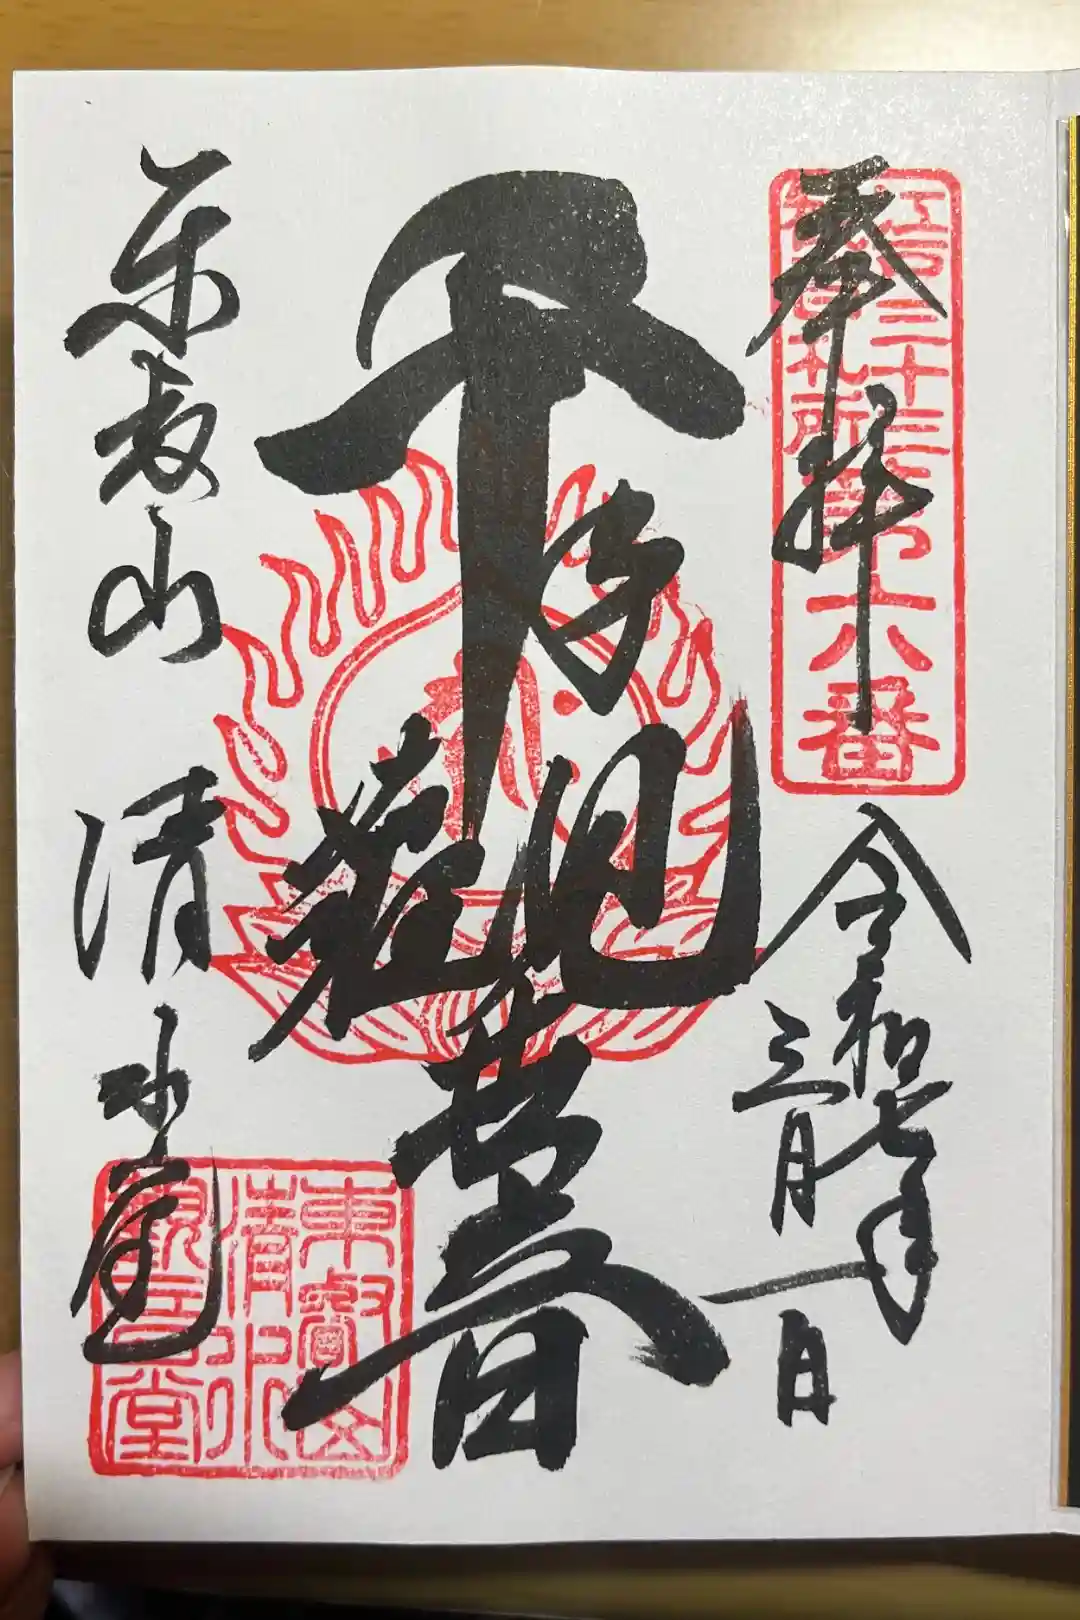 奉拝
江戸三十三
観音札所
第六番
令和七年
三月一日
千手觀世音
東叡山 清水堂
東叡山
清水
觀音堂